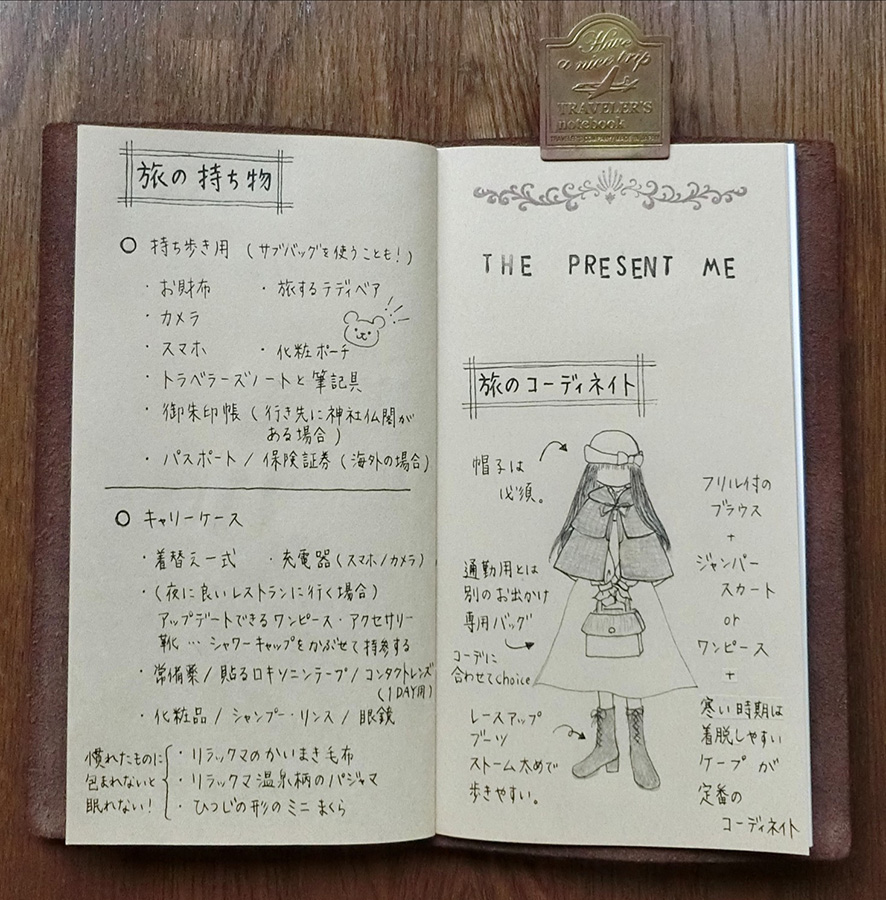 Have
a nice trip
TRAVELER'S
notebook
旅の持ち物
○ 持ち歩き用 (サブバッグを使うことも!)
・お財布 ・旅するテディベア
・カメラ
・スマホ ・化粧ポーチ
・トラベラーズノートと筆記具
・御朱印帳 (行き先に神社仏閣が
ある場合)
・パスポート / 保険証券 (海外の場合)
○ キャリーケース
・着替え一式 ・充電器 (スマホ/カメラ)
・(夜に良いレストランに行く場合)
アップデートできるワンピース・アクセサリー
靴 … シャワーキャップをかぶせて持参する
・常備薬 / 貼るロキソニンテープ / コンタクトレンズ
(1DAY用)
・化粧品 / シャンプー・リンス / 眼鏡
慣れたものに
包まれないと
眠れない!
・リラックマのかいまき毛布
・リラックマ温泉柄のパジャマ
・ひつじの形のミニまくら
THE PRESENT ME
旅のコーディネイト
帽子は
必須。
通勤用とは
別のお出かけ
専用バッグ
コーデに
合わせてchoice
レースアップ
ブーツ
ストーム太めで
歩きやすい。
フリル付の
ブラウス
+
ジャンパー
スカート
or
ワンピース
+
寒い時期は
着脱しやすい
ケープが
定番の
コーディネイト